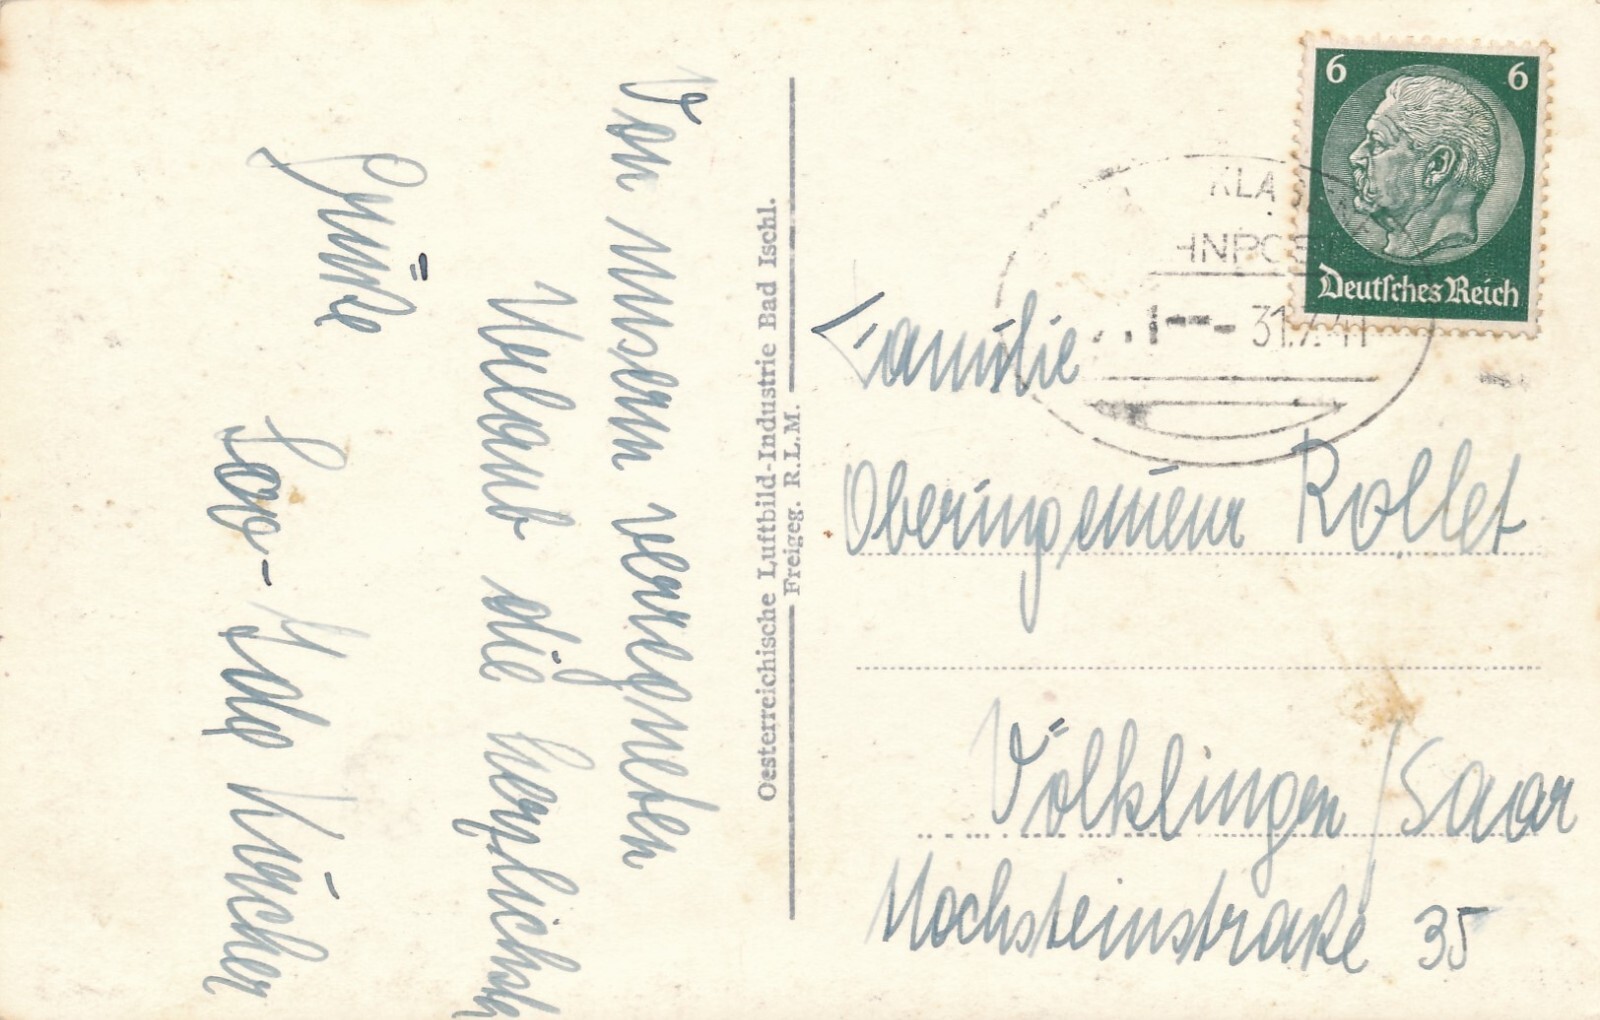 Von unserm verregneten
Urlaub die herzlichsten
Grüße
Ida
Oesterreichische Luftbild-Industrie Bad Ischl.
Freigeg. R.L.M.
6 6
Deutsches Reich
31.7.41
Familie
Oberingenieur Rollet
Völklingen/Saar
Hochsteinstraße 35